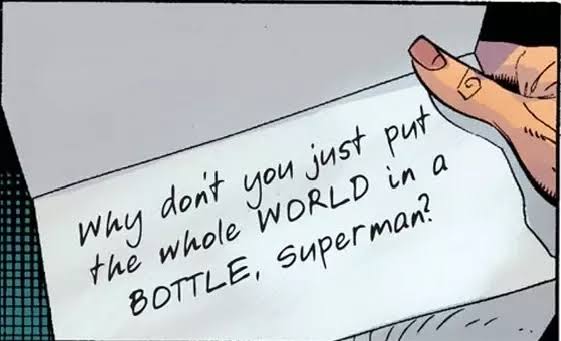 Why don't you just put
the whole WORLD in a
BOTTLE, Superman?